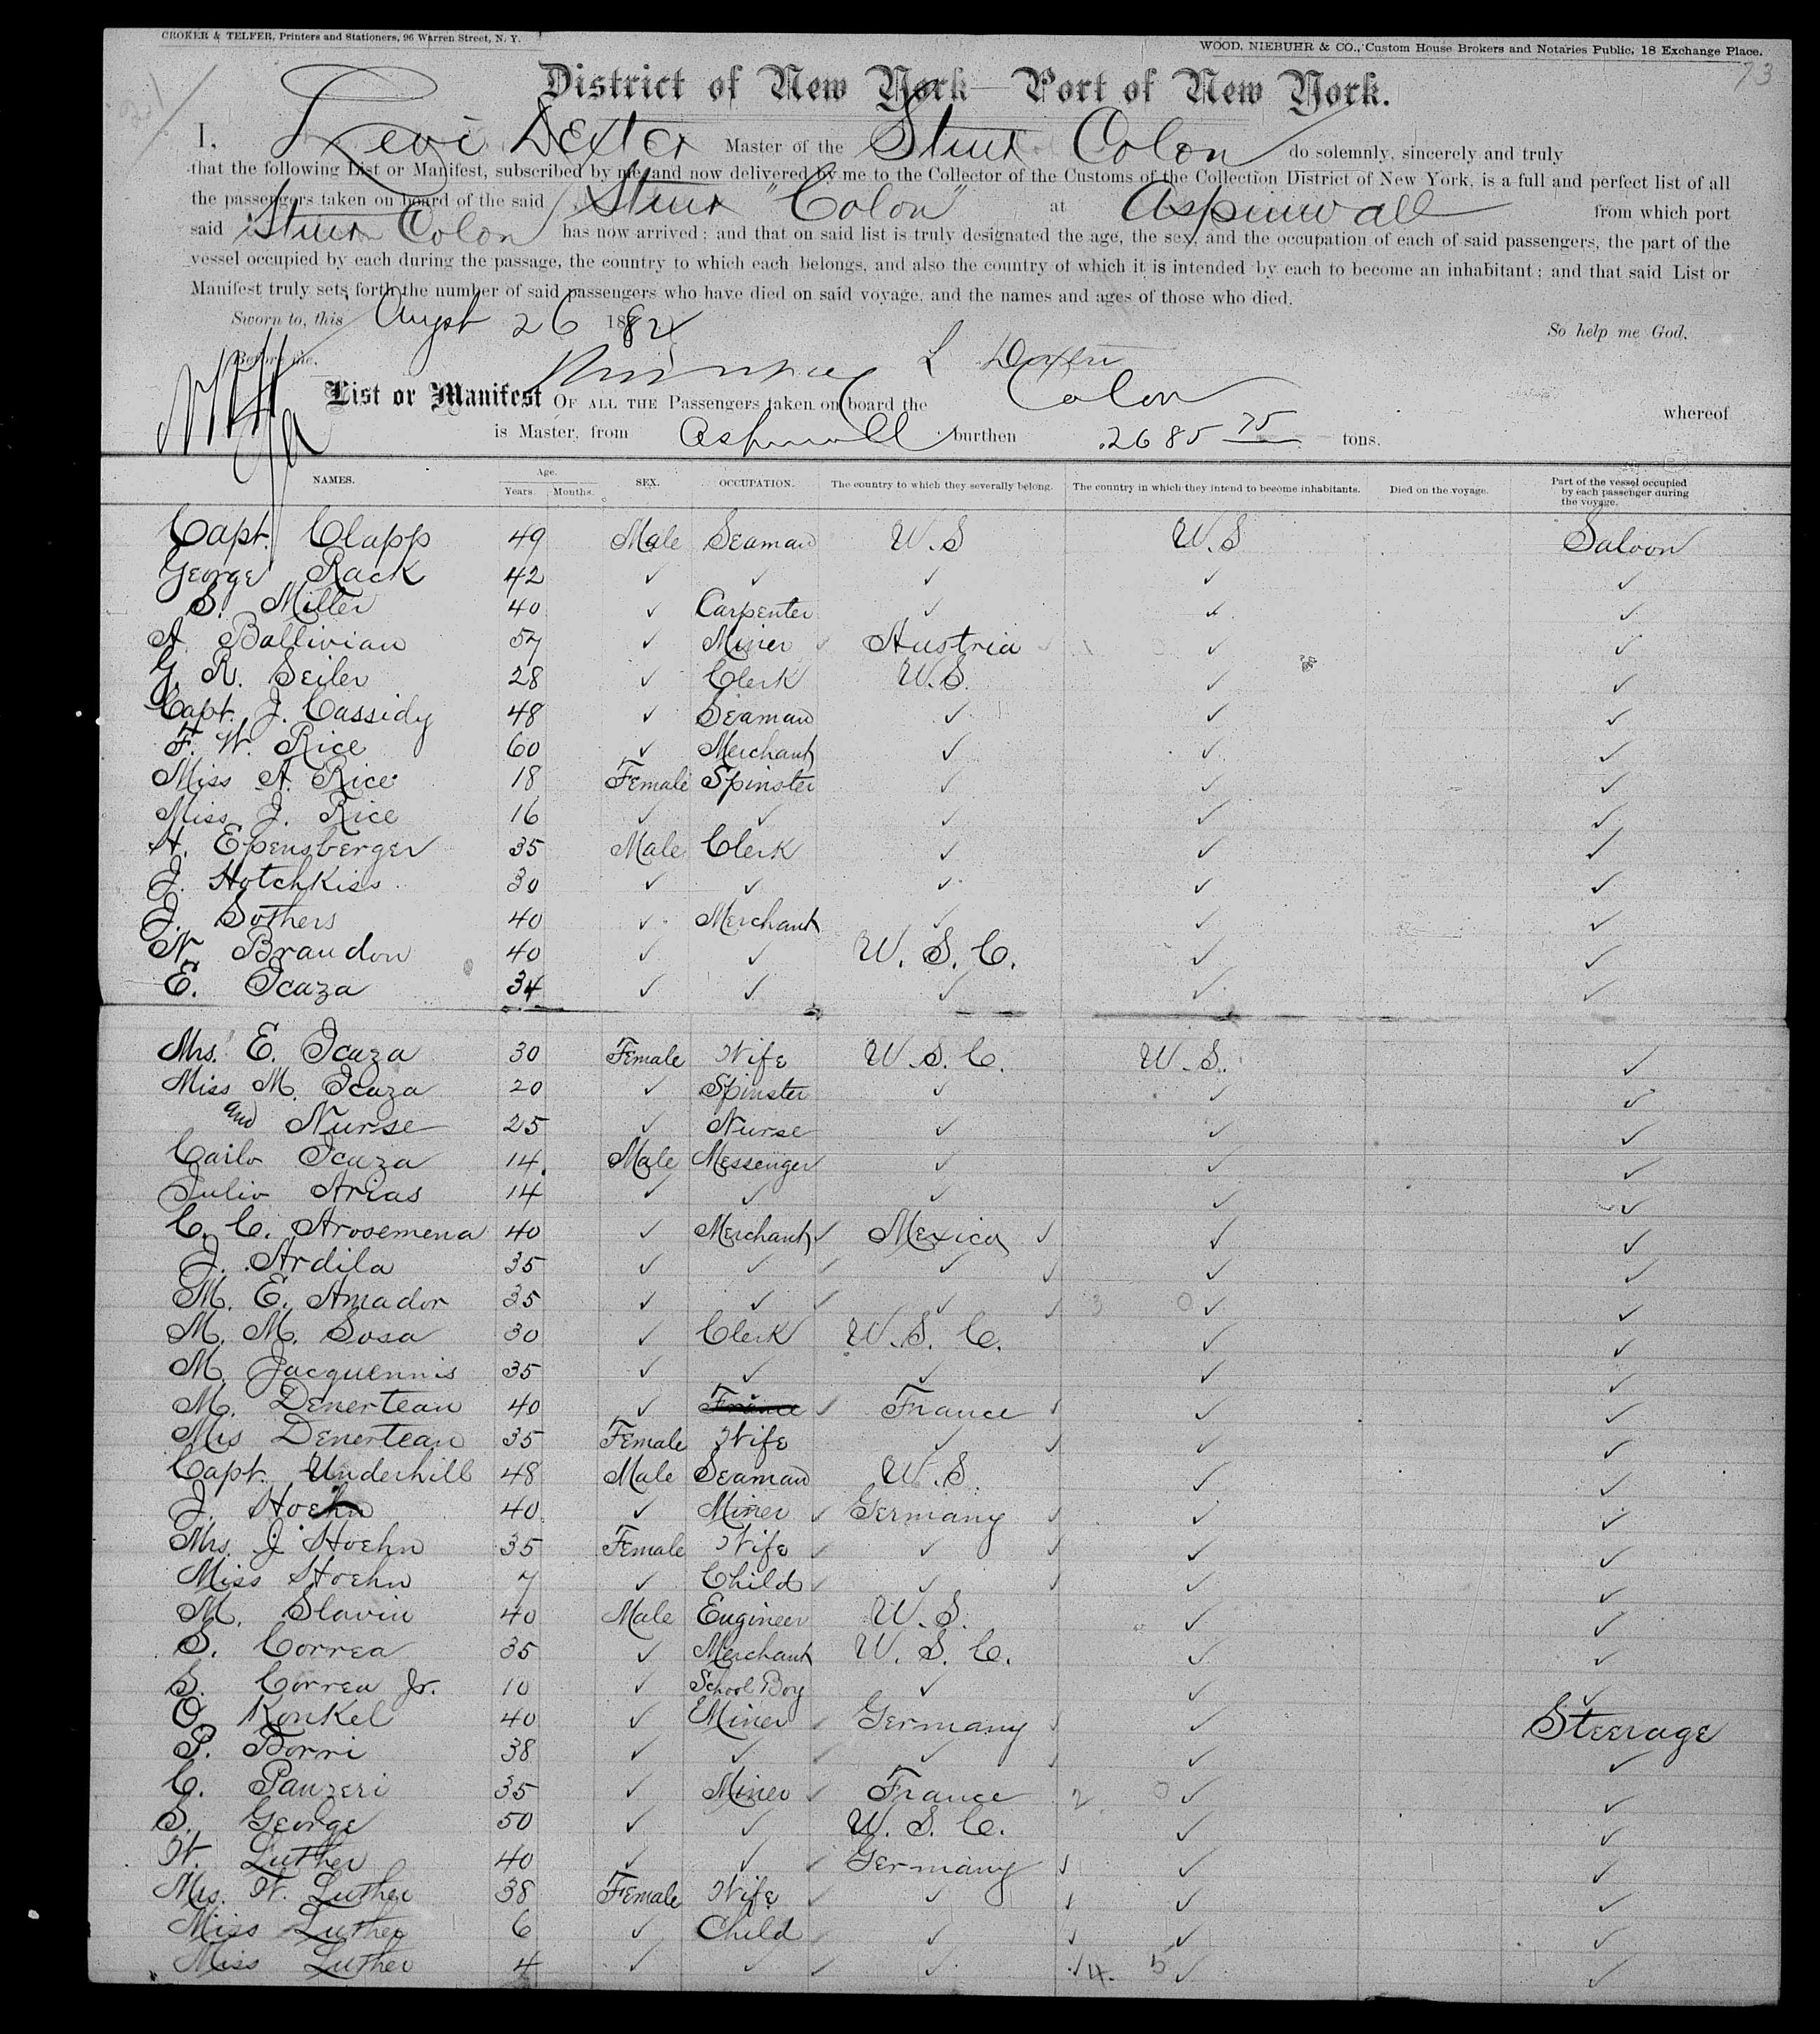 CROKER & TELFER, Printers and Stationers, 96 Warren Street, N. Y.
WOOD, NIEBUHR & CO., Custom House Brokers and Notaries Public, 18 Exchange Place.
73
21
District of New York - Port of New York.
I, Levi Dexter Master of the Stmr Colon do solemnly, sincerely and truly
that the following List or Manifest, subscribed by me and now delivered by me to the Collector of the Customs of the Collection District of New York, is a full and perfect list of all
the passengers taken on board of the said Stmr "Colon" at Aspinwall from which port
said Stmr Colon has now arrived; and that on said list is truly designated the age, the sex, and the occupation of each of said passengers, the part of the
vessel occupied by each during the passage, the country to which each belongs, and also the country of which it is intended by each to become an inhabitant; and that said List or
Manifest truly sets forth the number of said passengers who have died on said voyage, and the names and ages of those who died.
Sworn to, this Augst 26 1882 So help me God.
Before me, L Dexter
List or Manifest OF ALL THE Passengers taken on board the Colon whereof
is Master, from Aspinwall burthen 2685 75 tons.
NAMES. Age. Years. Months. SEX. OCCUPATION. The country to which they severally belong. The country in which they intend to become inhabitants. Died on the voyage. Part of the vessel occupied by each passenger during the voyage.
Capt. Clapp 49 Male Seaman U.S U.S Saloon
George Rack 42 ✓ ✓ ✓ ✓ ✓
S. Miller 40 ✓ Carpenter ✓ ✓ ✓
A. Ballivian 57 ✓ Miner ✓ Austria ✓ ✓ ✓
G. R. Seiler 28 ✓ Clerk U.S. ✓ ✓
Capt. J. Cassidy 48 ✓ Seaman ✓ ✓ ✓
F. W. Rice 60 ✓ Merchant ✓ ✓ ✓
Miss A. Rice 18 Female Spinster ✓ ✓ ✓
Miss J. Rice 16 ✓ ✓ ✓ ✓ ✓
H. Epensberger 35 Male Clerk ✓ ✓ ✓
J. Hotchkiss 30 ✓ ✓ ✓ ✓ ✓
J. Sothers 40 ✓ Merchant ✓ ✓ ✓
N. Brandon 40 ✓ ✓ U. S. C. ✓ ✓
E. Icaza 34 ✓ ✓ ✓ ✓ ✓
Mrs. E. Icaza 30 Female Wife U. S. C. U. S. ✓
Miss M. Icaza 20 ✓ Spinster ✓ ✓ ✓
and Nurse 25 ✓ Nurse ✓ ✓ ✓
Carlo Icaza 14. Male Messenger ✓ ✓ ✓
Julio Arias 14 ✓ ✓ ✓ ✓ ✓
C. C. Arosemena 40 ✓ Merchant ✓ Mexico ✓ ✓ ✓
J. Ardila 35 ✓ ✓ ✓ ✓ ✓ ✓ ✓
M. E. Amador 35 ✓ ✓ ✓ ✓ ✓ 3 0 ✓ ✓
M. M. Sosa 30 ✓ Clerk U. S. C. ✓ ✓
M. Jacquennis 35 ✓ ✓ ✓ ✓ ✓
M. Denertean 40 ✓ France ✓ France ✓ ✓ ✓
Mrs Denertean 35 Female Wife ✓ ✓ ✓ ✓
Capt. Underhill 48 Male Seaman U. S. ✓ ✓
J. Hoehn 40 ✓ Miner ✓ Germany ✓ ✓ ✓
Mrs. J. Hoehn 35 Female Wife ✓ ✓ ✓ ✓ ✓
Miss Hoehn 7 ✓ Child ✓ ✓ ✓ ✓ ✓
M. Slavin 40 Male Engineer U. S. ✓ ✓
S. Correa 35 ✓ Merchant U. S. C. ✓ ✓
S. Correa Jr. 10 ✓ School Boy ✓ ✓ ✓
O. Konkel 40 ✓ Miner ✓ Germany ✓ ✓ Steerage
P. Borri 38 ✓ ✓ ✓ ✓ ✓ ✓ ✓
C. Panzeri 35 ✓ Miner ✓ France 2 0 ✓ ✓
S. George 50 ✓ ✓ U. S. C. ✓ ✓
W. Luther 40 ✓ ✓ ✓ Germany ✓ ✓ ✓
Mrs. W. Luther 38 Female Wife ✓ ✓ ✓ ✓ ✓
Miss Luther 6 ✓ Child ✓ ✓ ✓ ✓ ✓
Miss Luther 4 ✓ ✓ ✓ ✓ ✓ 4. 5 ✓ ✓